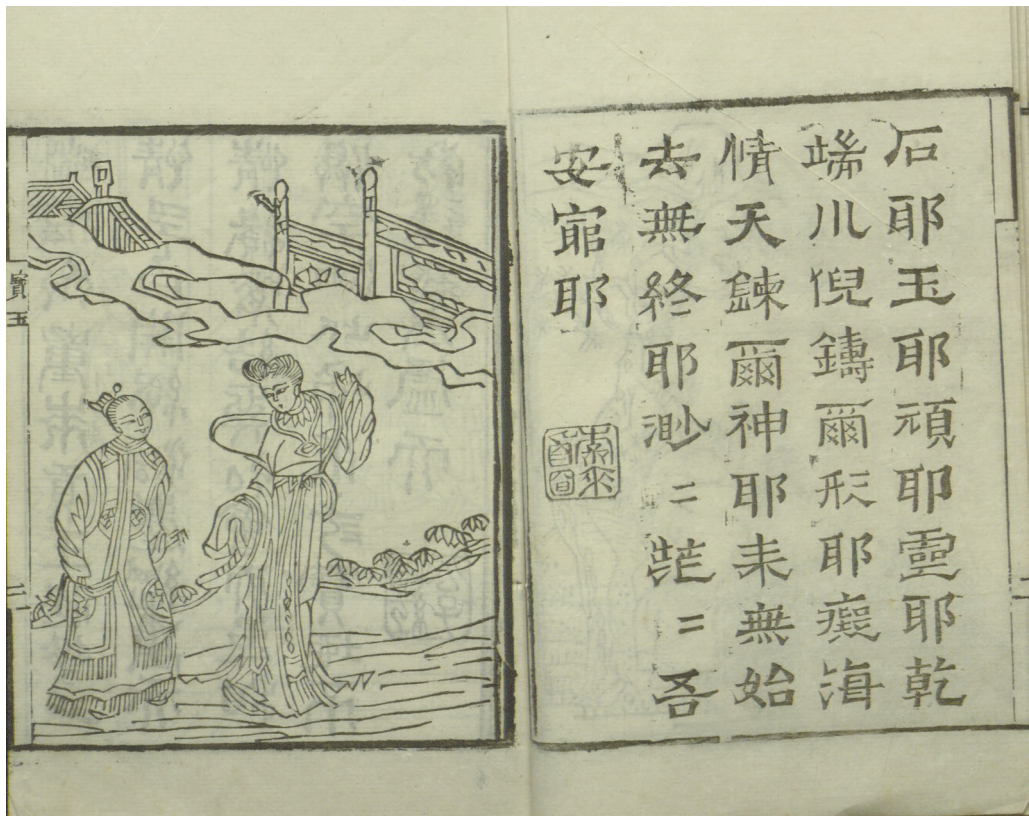 石耶玉耶頑耶靈耶乾
端小倪鑄爾形耶癡海
情天鍊爾神耶来無始
去無終耶渺〻茫〻吾
安窮耶
寶玉
二